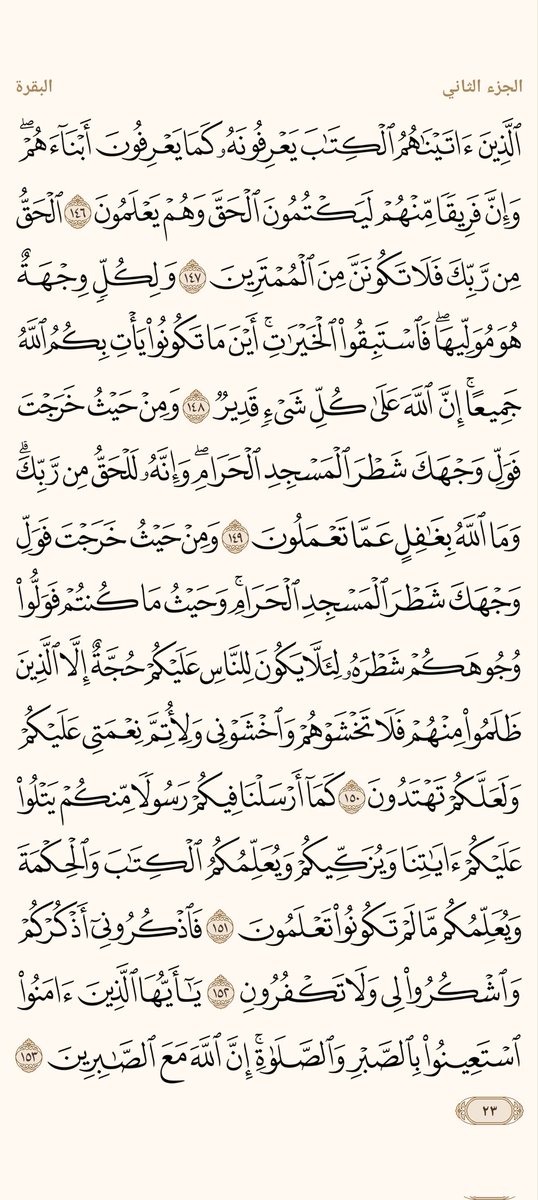 الجزء الثاني
البقرة
ٱلَّذِينَ ءَاتَيۡنَٰهُمُ ٱلۡكِتَٰبَ يَعۡرِفُونَهُۥ كَمَا يَعۡرِفُونَ أَبۡنَآءَهُمۡۖ
وَإِنَّ فَرِيقٗا مِّنۡهُمۡ لَيَكۡتُمُونَ ٱلۡحَقَّ وَهُمۡ يَعۡلَمُونَ ١٤٦ ٱلۡحَقُّ
مِن رَّبِّكَ فَلَا تَكُونَنَّ مِنَ ٱلۡمُمۡتَرِينَ ١٤٧ وَلِكُلّٖ وِجۡهَةٌ
هُوَ مُوَلِّيهَاۖ فَٱسۡتَبِقُواْ ٱلۡخَيۡرَٰتِۚ أَيۡنَ مَا تَكُونُواْ يَأۡتِ بِكُمُ ٱللَّهُ
جَمِيعًاۚ إِنَّ ٱللَّهَ عَلَىٰ كُلِّ شَيۡءٖ قَدِيرٞ ١٤٨ وَمِنۡ حَيۡثُ خَرَجۡتَ
فَوَلِّ وَجۡهَكَ شَطۡرَ ٱلۡمَسۡجِدِ ٱلۡحَرَامِۖ وَإِنَّهُۥ لَلۡحَقُّ مِن رَّبِّكَۗ
وَمَا ٱللَّهُ بِغَٰفِلٍ عَمَّا تَعۡمَلُونَ ١٤٩ وَمِنۡ حَيۡثُ خَرَجۡتَ فَوَلِّ
وَجۡهَكَ شَطۡرَ ٱلۡمَسۡجِدِ ٱلۡحَرَامِۚ وَحَيۡثُ مَا كُنتُمۡ فَوَلُّواْ
وُجُوهَكُمۡ شَطۡرَهُۥ لِئَلَّا يَكُونَ لِلنَّاسِ عَلَيۡكُمۡ حُجَّةٌ إِلَّا ٱلَّذِينَ
ظَلَمُواْ مِنۡهُمۡ فَلَا تَخۡشَوۡهُمۡ وَٱخۡشَوۡنِي وَلِأُتِمَّ نِعۡمَتِي عَلَيۡكُمۡ
وَلَعَلَّكُمۡ تَهۡتَدُونَ ١٥٠ كَمَآ أَرۡسَلۡنَا فِيكُمۡ رَسُولٗا مِّنكُمۡ يَتۡلُواْ
عَلَيۡكُمۡ ءَايَٰتِنَا وَيُزَكِّيكُمۡ وَيُعَلِّمُكُمُ ٱلۡكِتَٰبَ وَٱلۡحِكۡمَةَ
وَيُعَلِّمُكُم مَّا لَمۡ تَكُونُواْ تَعۡلَمُونَ ١٥١ فَٱذۡكُرُونِيٓ أَذۡكُرۡكُمۡ
وَٱشۡكُرُواْ لِي وَلَا تَكۡفُرُونِ ١٥٢ يَٰٓأَيُّهَا ٱلَّذِينَ ءَامَنُواْ
ٱسۡتَعِينُواْ بِٱلصَّبۡرِ وَٱلصَّلَوٰةِۚ إِنَّ ٱللَّهَ مَعَ ٱلصَّٰبِرِينَ ١٥٣
٢٣